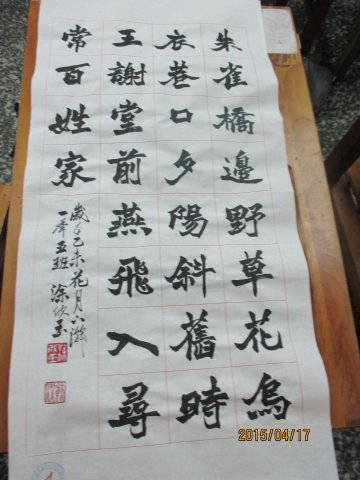 朱雀橋邊野草花烏
衣巷口夕陽斜舊時
王謝堂前燕飛入尋
常百姓家
歲在乙未花月下澣
一年五班 涂欣
2015/04/17